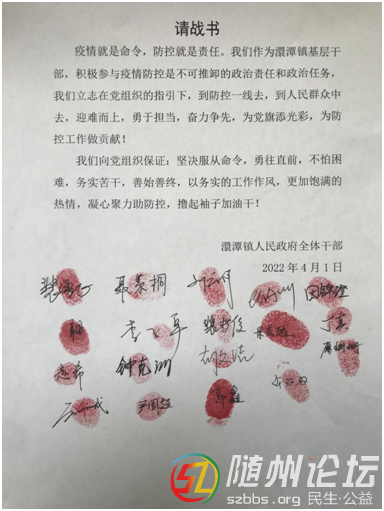 请战书
疫情就是命令，防控就是责任。我们作为澴潭镇基层干
部，积极参与疫情防控是不可推卸的政治责任和政治任务，
我们立志在党组织的指引下，到防控一线去，到人民群众中
去，迎难而上，勇于担当，奋力争先，为党旗添光彩，为防
控工作做贡献！
我们向党组织保证：坚决服从命令，勇往直前，不怕困
难，务实苦干，善始善终，以务实的工作作风，更加饱满的
热情，凝心聚力助防控，撸起袖子加油干！
澴潭镇人民政府全体干部
2022 年 4 月 1 日
随州论坛
szbbs.org 民生·公益